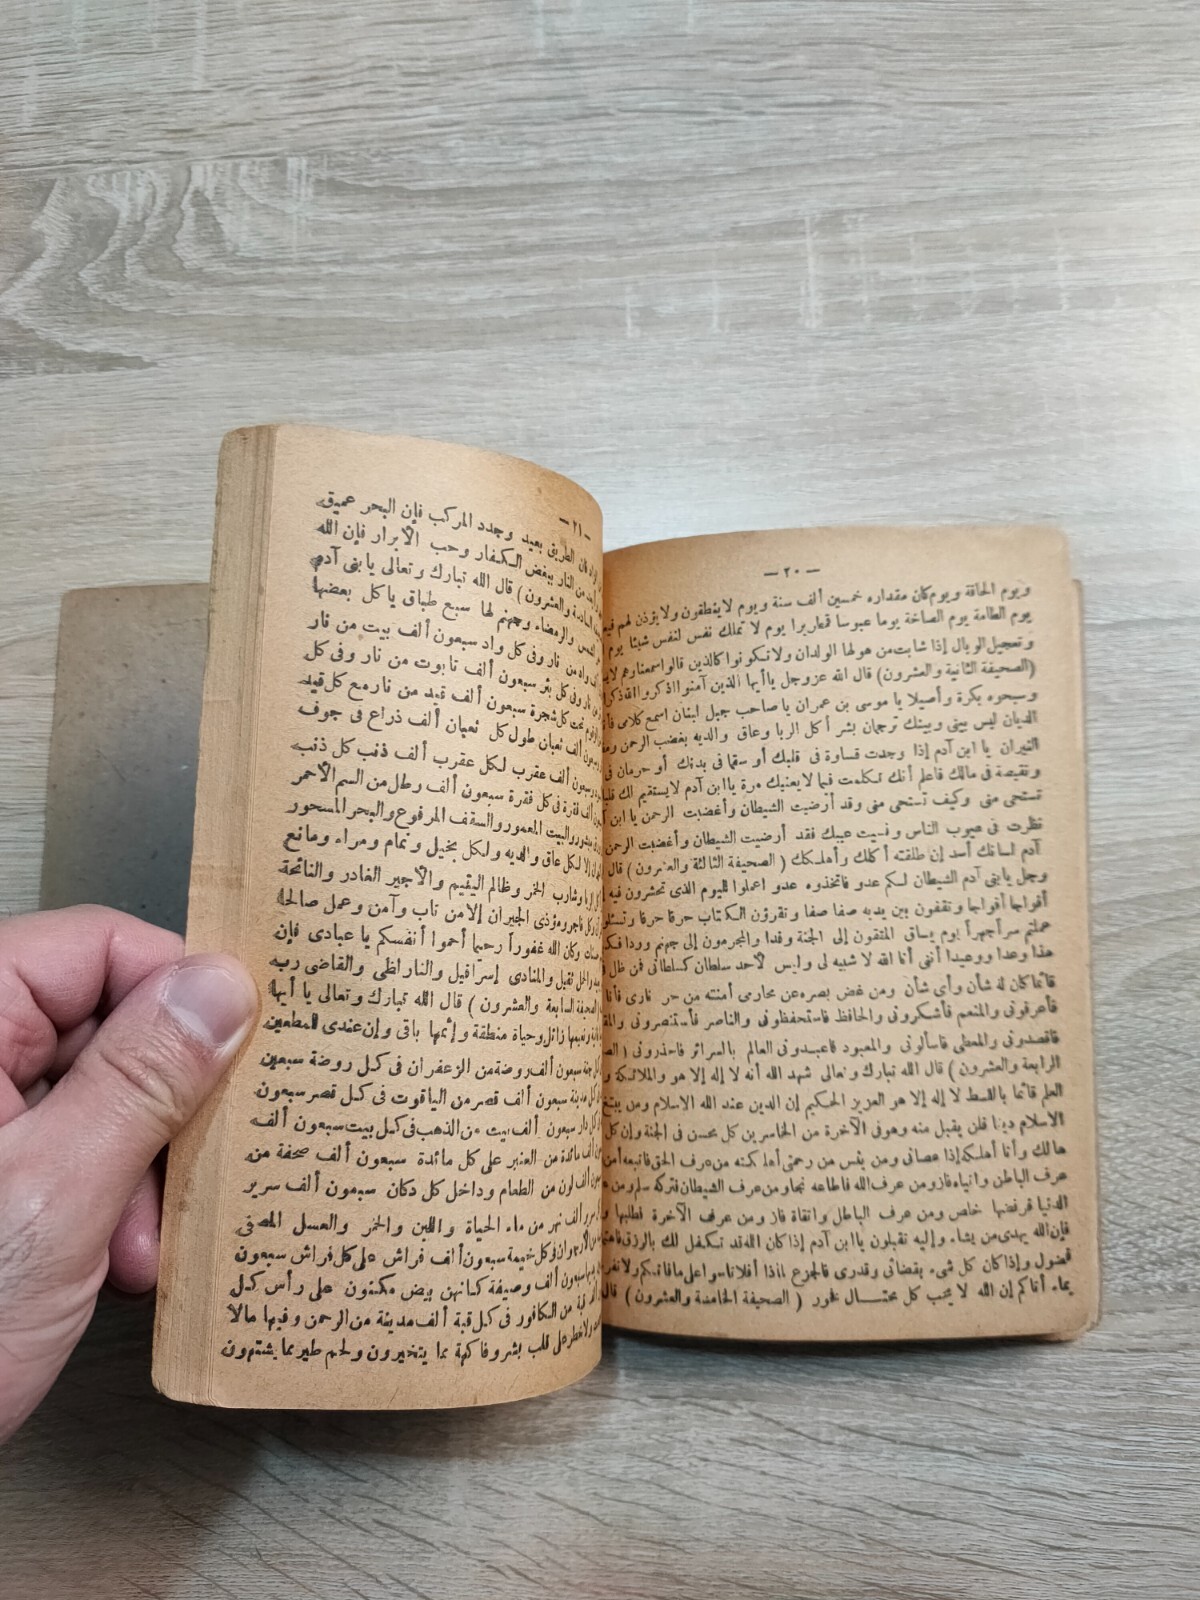 — ٢٠ —
ويوم الحاقة ويوم كان مقداره خمسين ألف سنة ويوم لا ينطقون ولا يؤذن لهم
يوم الطامة يوم الصاخة يوما عبوسا قمطريرا يوم لا تملك نفس لنفس شيئا يوم
وتعجيل الوبال إذا شابت من هولها الولدان ولا تكونوا كالذين قالوا سمعنا وهم
(الصحيفة الثانية والعشرون) قال الله عز وجل يا أيها الذين آمنوا اذكروا الله ذكرا
وسبحوه بكرة وأصيلا يا موسى بن عمران يا صاحب جبل لبنان اسمع كلامى
الديان ليس بينى وبينك ترجمان بشر أكل الربا وعاق والديه بغضب الرحمن
النيران يا ابن آدم إذا وجدت قساوة فى قلبك أو سقما فى بدنك أو حرمان فى
ونقيصة فى مالك فاعلم أنك تكلمت فيما لا يعنيك مرة يا ابن آدم لا يستقيم لك
تستحى منى وكيف تستحى منى وقد أرضيت الشيطان وأغضبت الرحمن يا ابن
نظرت فى عيوب الناس ونسيت عيبك فقد أرضيت الشيطان وأغضبت الرحمن
آدم لسانك أسد إن طلقته أكلك وأهلكك (الصحيفة الثالثة والعشرون) قال
وجل يا بنى آدم الشيطان لكم عدو فاتخذوه عدو اعملوا لليوم الذى تحشرون فيه
أفواجا أفواجا وتقفون بين يديه صفا صفا وتقرؤن الكتاب حرفا حرفا
عملتم سرا جهرا يوم يساق المتقون إلى الجنة وفدا والمجرمون إلى جهنم وردا
هذا وعدا ووعيدا أننى أنا الله لا شبيه لى وليس لأحد سلطان كسلطانى فمن ظل
قائما كان له شأن وأى شأن ومن غض بصره عن محارمى أمنته من حر نارى فأنا
فأعرفونى والمنعم فأشكرونى والحافظ فاستحفظونى والناصر فأستنصرونى
فاقصدونى والمعطى فاسألونى والمعبود فاعبدونى العالم بالسرائر فاحذرونى
الرابعة والعشرون) قال الله تبارك وتعالى شهد الله أنه لا إله إلا هو والملائكة
العلم قائما بالقسط لا إله إلا هو العزيز الحكيم إن الدين عند الله الاسلام ومن
الاسلام دينا فلن يقبل منه وهو فى الآخرة من الخاسرين كل محسن فى الجنة وإن كل
هالك وأنا أهلكه إذا عصانى ومن يئس من رحمتى أهلكته من عرف الحق
عرف الباطن وانبأه فاز ومن عرف الله فاطاعه نجا ومن عرف الشيطان فتركه سلم
الدنيا فرفضها خلص ومن عرف الباطل واتقاه فاز ومن عرف الآخرة فطلبها
فإن الله يهدى من يشاء وإليه تقبلون يا ابن آدم إذا كان الله قد تكفل لك بالرزق
فضول وإذا كان كل شىء بقضائى وقدرى فالجزع لماذا
بما أتاكم إن الله لا يحب كل محتال فخور (الصحيفة الخامسة والعشرون) قال
— ٢١ —
فإن الطريق بعيد وجدد المركب فإن البحر عميق
من النار ببغض الكفار وحب الأبرار فإن الله
السادسة والعشرون) قال الله تبارك وتعالى يا بنى آدم
الشمس والرمضاء وجهنم لها سبع طباق يأكل بعضها
واد من نار وفى كل واد سبعون ألف بيت من نار
من نار وفى كل بئر سبعون ألف تابوت من نار وفى كل
الزقوم تحت كل شجرة سبعون ألف قيد من نار مع كل قيد
وسبعون ألف ثعبان طول كل ثعبان ألف ذراع فى جوف
وسبعون ألف عقرب لكل عقرب ألف ذنب كل ذنب
ألف فقرة فى كل فقرة سبعون ألف رطل من السم الأحمر
منشور والبيت المعمور والسقف المرفوع والبحر المسحور
إلا لكل عاق والديه ولكل بخيل ونمام ومراء ومانع
الربا وشارب الخمر وظالم اليتيم والأجير الغادر والنائحة
وكل فاجر ومؤذى الجيران إلا من تاب وآمن وعمل صالحا
حسنات وكان الله غفورا رحيما أحموا أنفسكم يا عبادى فإن
والحمل ثقيل والمنادى إسرافيل والنار لظى والقاضى رب
الصحيفة السابعة والعشرون) قال الله تبارك وتعالى يا أيها
ونعيمها زائل وحياة منطقة وإنها باقى وإن عندى للمطعين
جنة سبعون ألف روضة من الزعفران فى كل روضة سبعين
مدينة سبعون ألف قصر من الياقوت فى كل قصر سبعون
دار سبعون ألف بيت من الذهب فى كل بيت سبعون ألف
ألف مائدة من العنبر على كل مائدة سبعون ألف صحفة من
ألف لون من الطعام وداخل كل دكان سبعون ألف سرير
ألف نهر من ماء الحياة واللبن والخمر والعسل المصفى
من الأرجوان فى كل خيمة سبعون ألف فراش على كل فراش سبعون
سبعون ألف وصيفة كأنهن بيض مكنون على رأس كل
قبة من الكافور فى كل قبة ألف مدينة من الرحمن وفيها مالا
ولا خطر على قلب بشر وفاكهة مما يتخيرون ولحم طير مما يشتهون